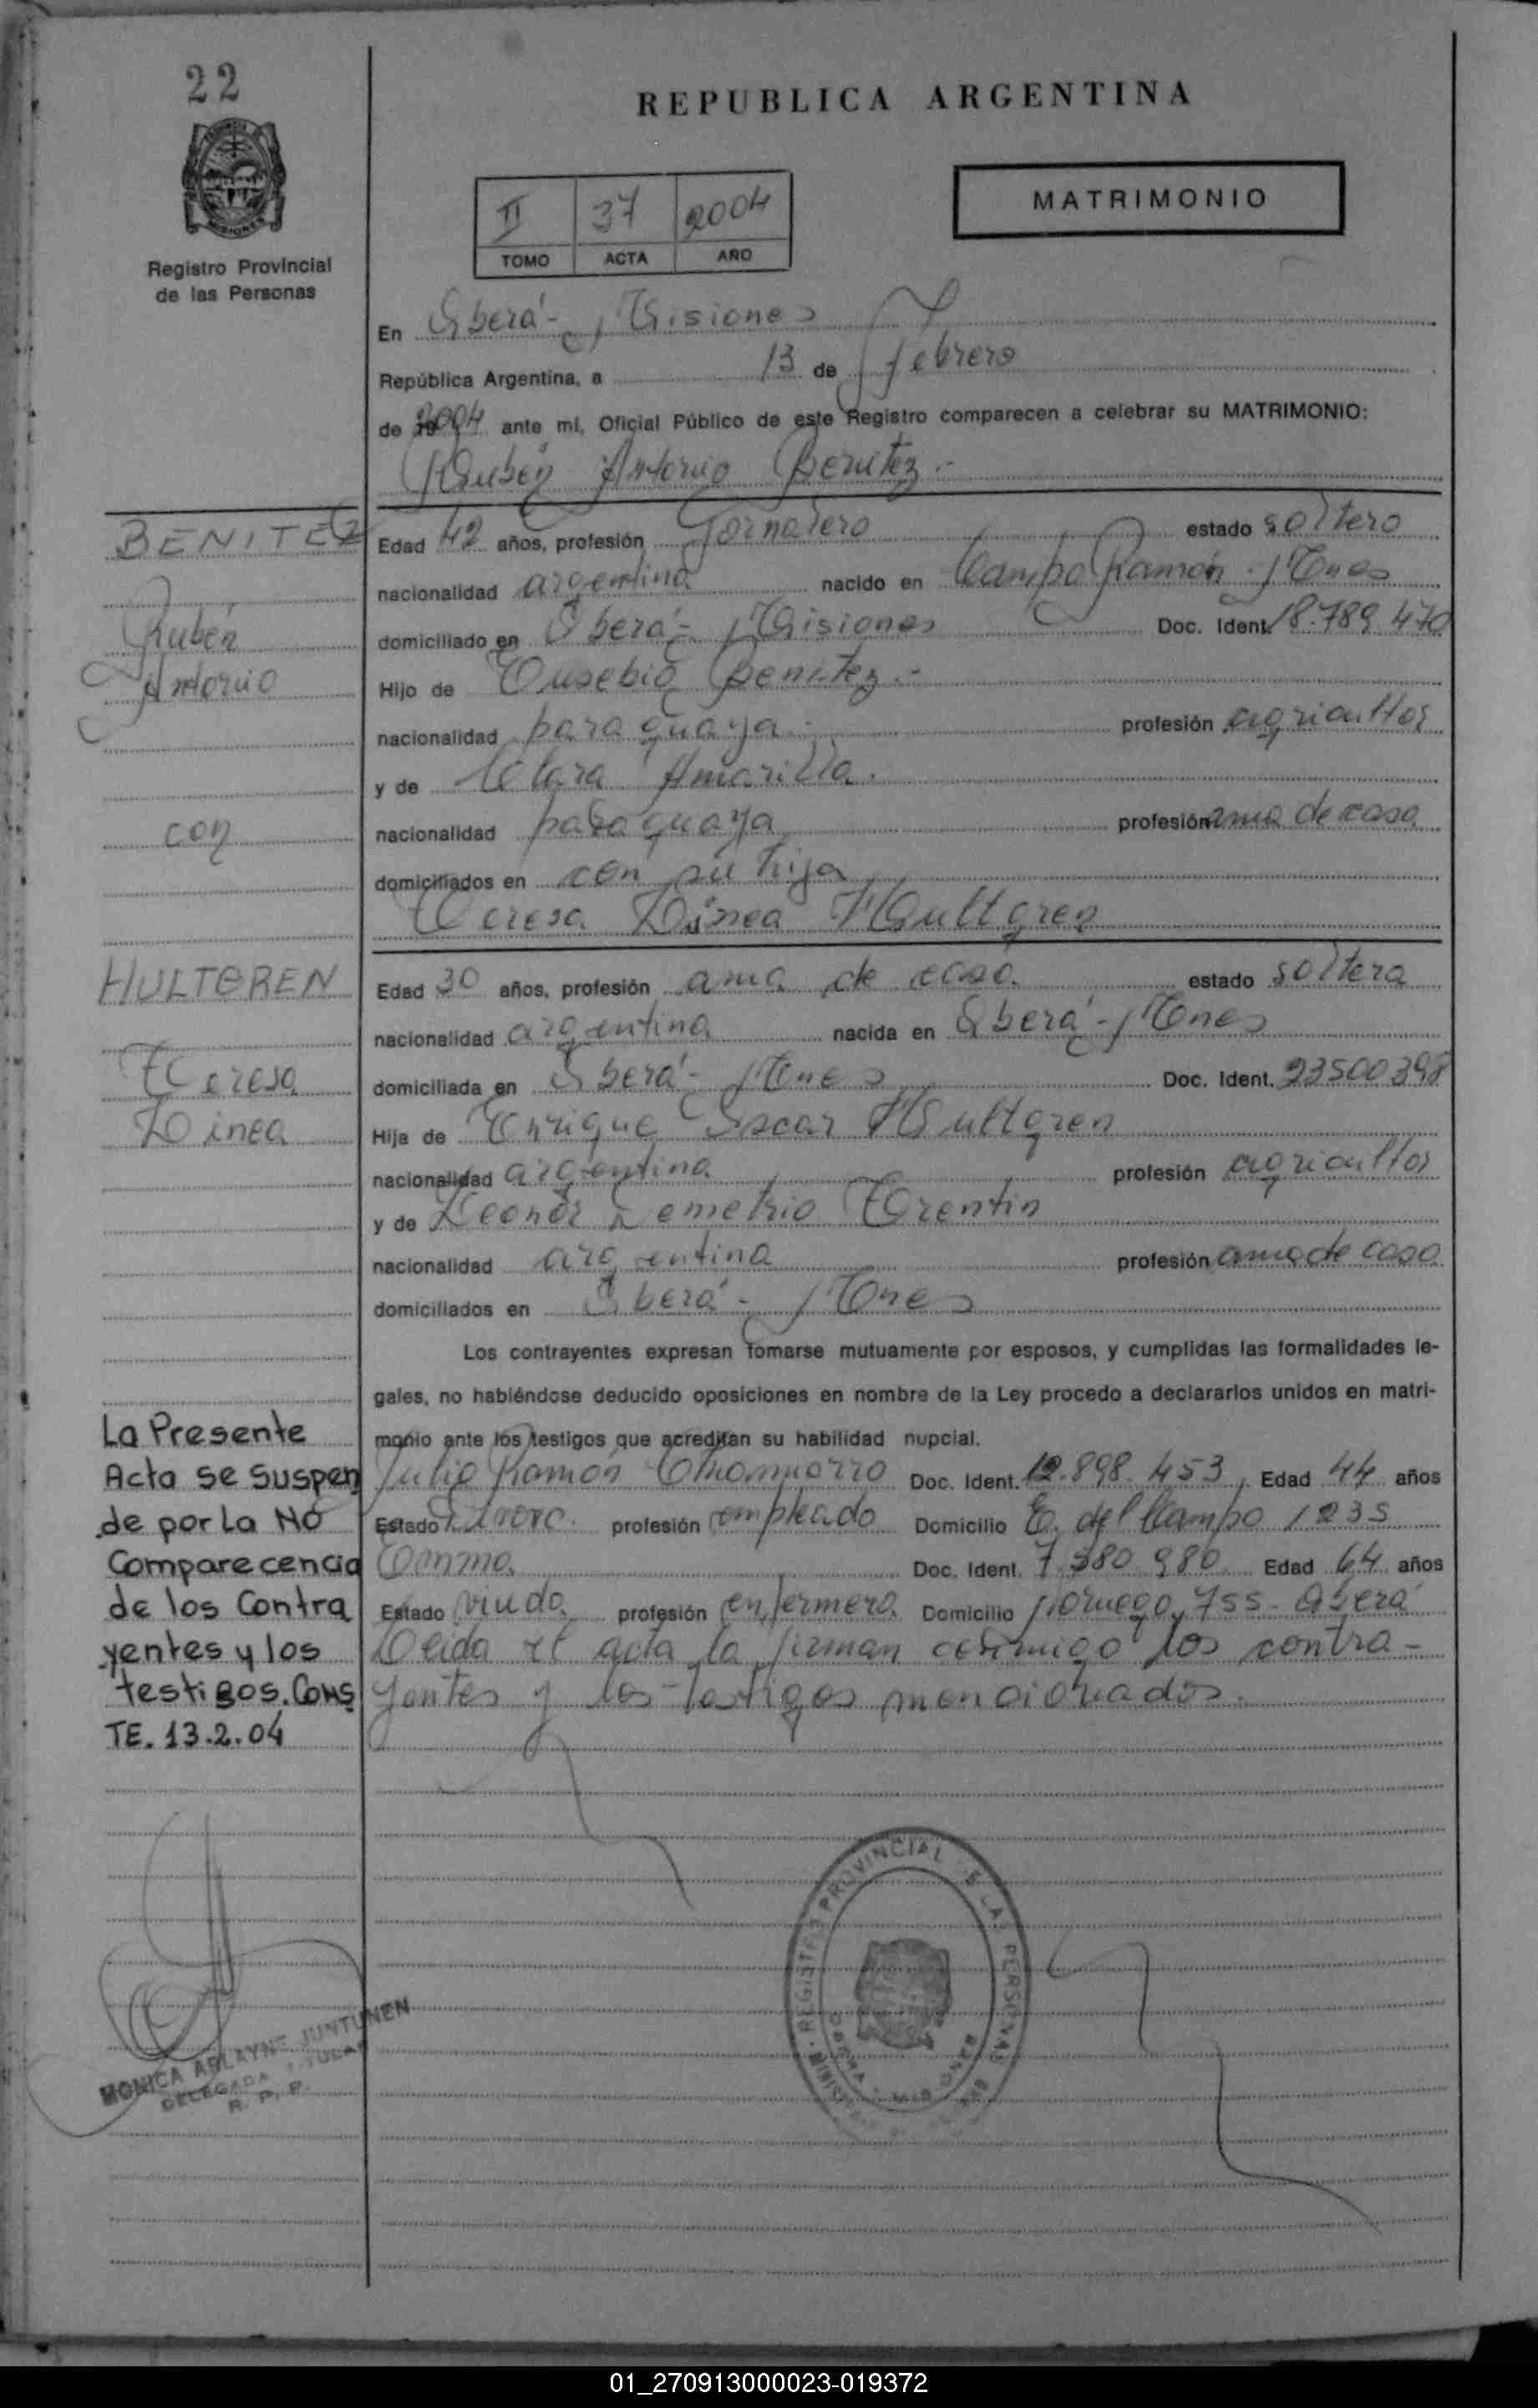 22
REPUBLICA ARGENTINA
MATRIMONIO
II 37 2004
TOMO ACTA AÑO
Registro Provincial
de las Personas
En Oberá - Misiones
República Argentina, a 13 de febrero
de 2004 ante mí, Oficial Público de este Registro comparecen a celebrar su MATRIMONIO:
Rubén Antonio Benitez.-
BENITEZ
Rubén
Antonio
con
Edad 42 años, profesión Jornalero estado soltero
nacionalidad argentina nacido en Campo Ramón - Mnes
domiciliado en Oberá - Misiones Doc. Ident. 18.789.470
Hijo de Eusebio Benitez.-
nacionalidad paraguaya.- profesión agricultor
y de Clara Amarilla.
nacionalidad paraguaya profesión ama de casa
domiciliados en con su hija
Teresa Dinea Hultgren
HULTGREN
Teresa
Dinea
Edad 30 años, profesión ama de casa estado soltera
nacionalidad argentina nacida en Oberá - Mnes
domiciliada en Oberá - Mnes Doc. Ident. 23500398
Hija de Enrique Oscar Hultgren
nacionalidad argentina profesión agricultor
y de Leonor Demetrio Trentin
nacionalidad argentina profesión ama de casa
domiciliados en Oberá - Mnes
Los contrayentes expresan tomarse mutuamente por esposos, y cumplidas las formalidades le-
gales, no habiéndose deducido oposiciones en nombre de la Ley procedo a declararlos unidos en matri-
monio ante los testigos que acreditan su habilidad nupcial.
Julio Ramón Doc. Ident. 12.898.453, Edad 44 años
Estado profesión empleado Domicilio E. del Campo 1235
Doc. Ident. 7.580.980 Edad 64 años
Estado viudo profesión enfermero Domicilio Noruego 755 - Oberá
Leída el acta la firman conmigo los contra-
yentes y los testigos mencionados.
La Presente
Acta se Suspen
de por la NO
Comparecencia
de los Contra
yentes y los
testigos. Cons
TE. 13.2.04
MONICA ARLAYNE JUNTUNEN
DELEGADA TITULAR
R. P. P.
REGISTRO PROVINCIAL DE LAS PERSONAS
01_270913000023-019372